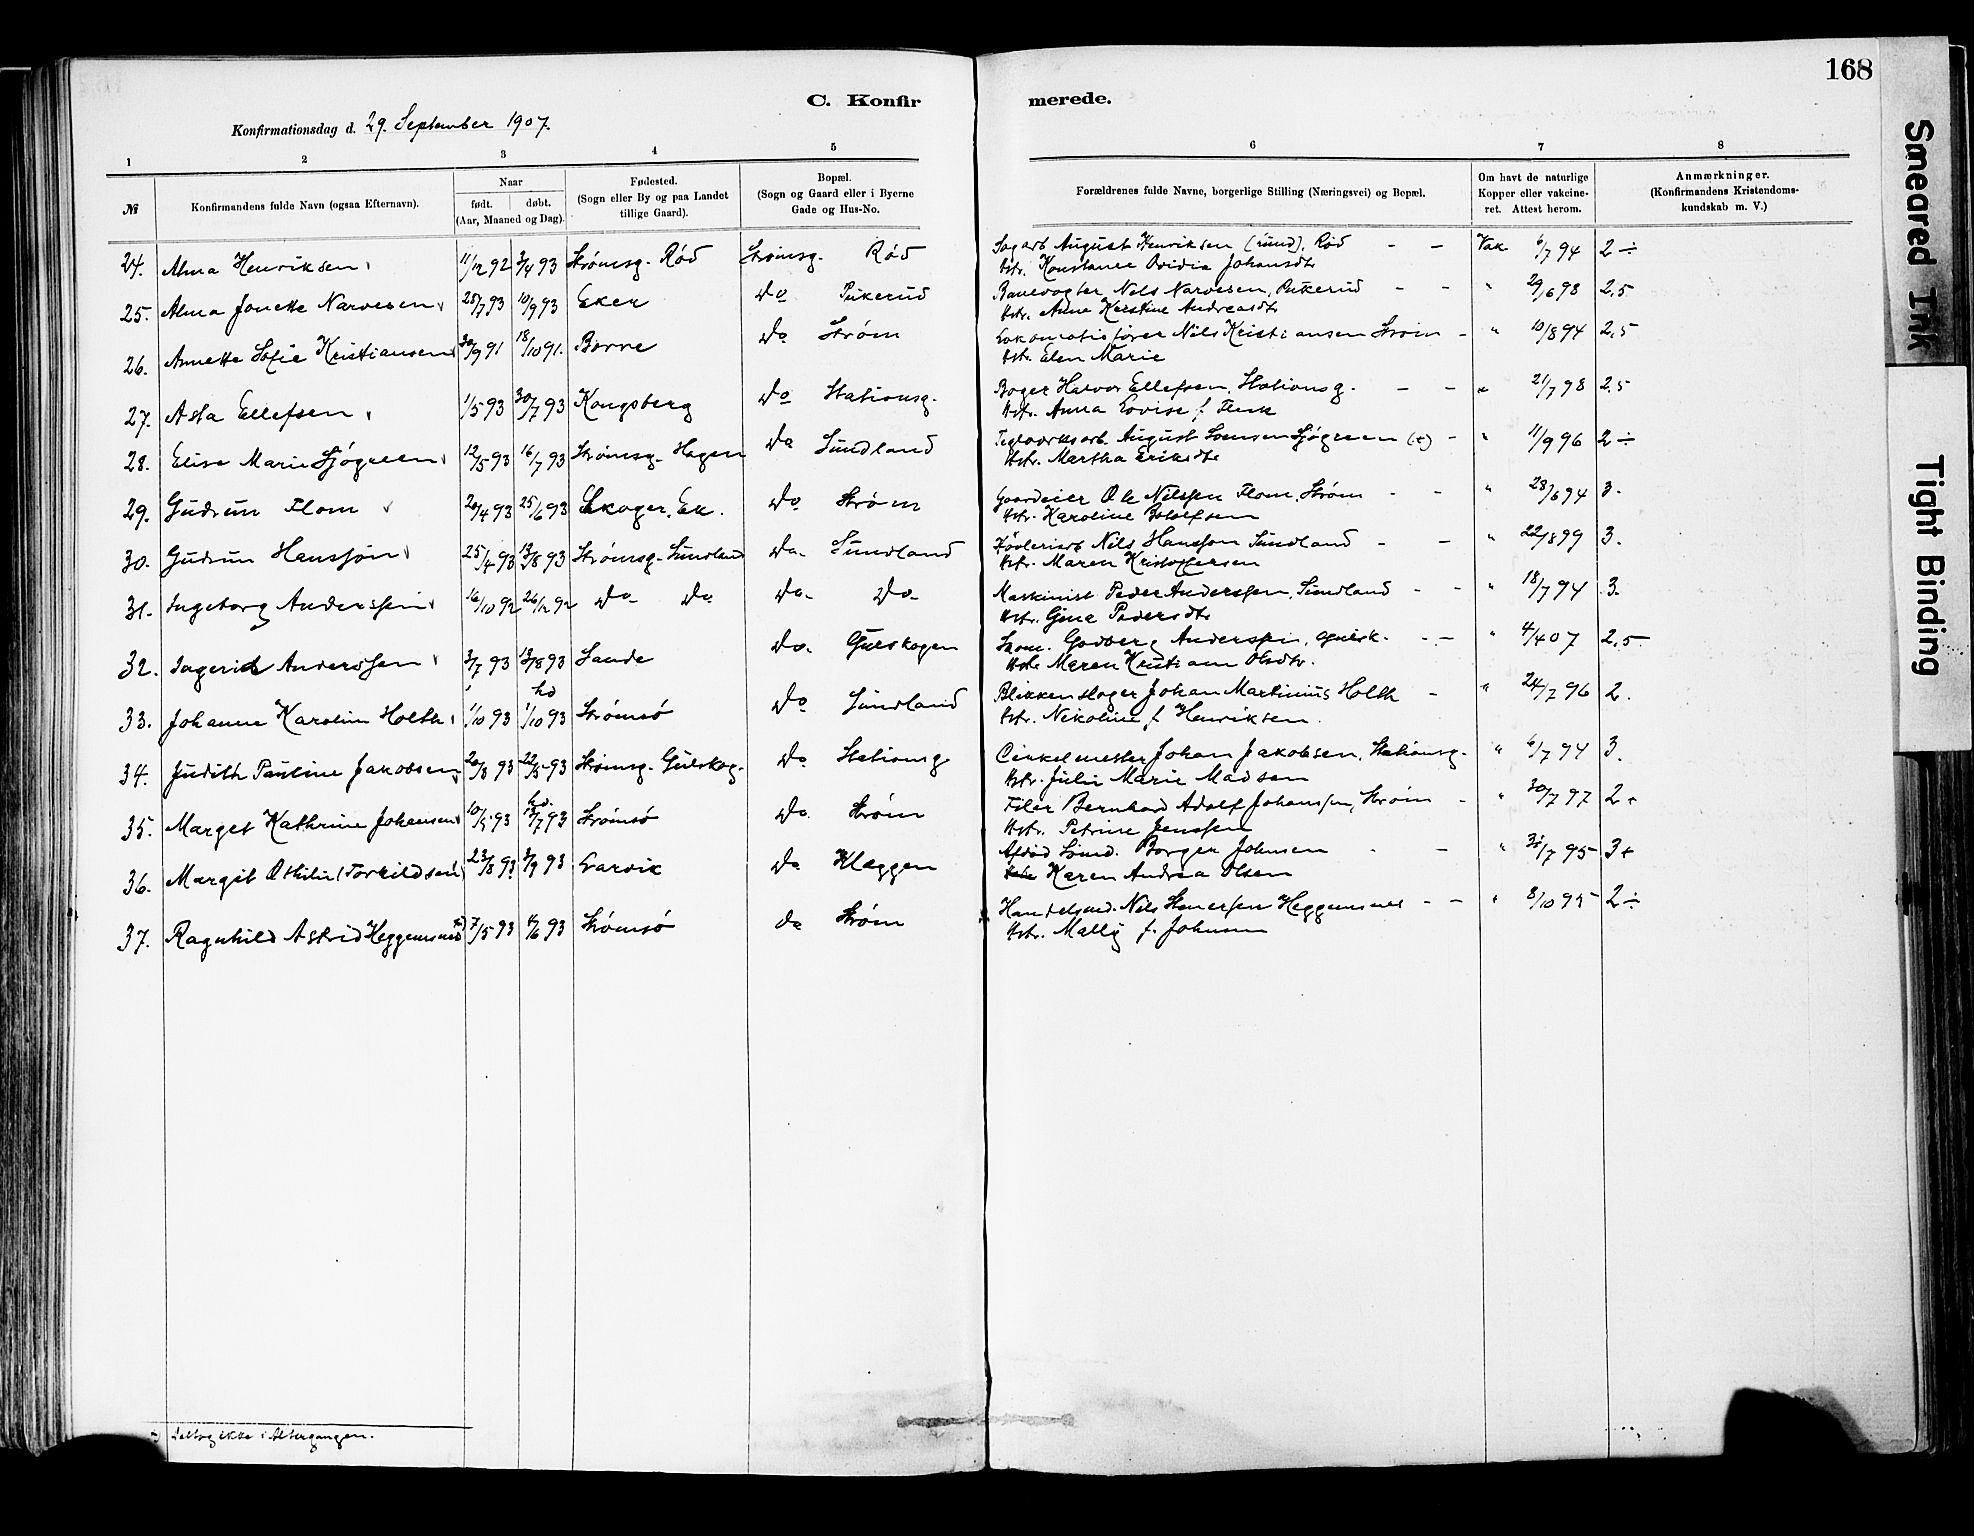 168
C. Konfir merede.
Konfirmationsdag d. 29. September 1907.
1 2 3 4 5 6 7 8
№ Konfirmandens fulde Navn (ogsaa Efternavn). Naar født. døbt. (Aar, Maaned og Dag). Fødested. (Sogn eller By og paa Landet tillige Gaard). Bopæl. (Sogn og Gaard eller i Byerne Gade og Hus-No. Forældrenes fulde Navne, borgerlige Stilling (Næringsvei) og Bopæl. Om havt de naturlige Kopper eller vakcineret. Attest herom. Anmærkninger. (Konfirmandens Kristendomskundskab m. V.)
24. Alma Henriksen 11/12 92 3/4 93 Strømsg. Rød Strømsg. Rød Sagarb August Henriksen (Lund), Rød - - Vak 6/7 94 2 ÷
Hstr. Konstance Ovidia Johansdtr
25. Alma Jonette Narvesen 25/7 93 10/9 93 Eker Do Pukerud Banevogter Nils Narvesen, Pukerud - - " 29/6 98 2,5
Hstr. Anne Kirstine Andreasdtr
26. Annette Sofie Kristiansen 30/9 91 18/10 91. Borre Do Strøm Lokomotivfører Nils Kristiansen Strøm - " 10/8 94 2,5
Hstr. Elen Marie
27. Asta Ellefsen 1/5 93 30/7 93 Kongsberg Do Stationsg. Bager Halvor Ellefsen, Stationsg. - - " 21/7 98 2,5
Hstr. Anna Lovise f.
28. Elise Marie Sjøgreen 12/5 93 16/7 93 Strømsg. Hagen Do Sundland Teglverksarb. August Svensen Sjøgreen - " 11/9 96 2 ÷
Hstr. Martha Eriksdtr
29. Gudrun Flom 20/4 93 25/6 93 Skoger, Ek. Do Strøm Gaardeier Ole Nilssen Flom, Strøm - - " 28/6 94 3.
Hstr. Karoline
30. Gudrun Hanssøn 25/4 93 13/8 93 Strømsg. Sundland Do. Sundland Nils Hanssøn Sundland - - " 22/8 99 3.
Hstr. Maren Kristoffersen
31. Ingeborg Anderssen 16/10 92 26/12 92 Do Do Do. Do. Maskinist Peder Anderssen, Sundland - - " 18/7 94 3.
Hstr. Gina Pedersdtr
32. Ingerid Anderssen 3/7 93 13/8 93 Sande Do. Gulskogen Skom. Godberg Anderssen, Gulsk. - - " 4/4 07 2,5
Hstr Maren Kristiane Olsdtr.
33. Johanne Karoline Holth 1/10 93 hd 1/10 93 Strømsø Do Sundland Blikkenslager Johan Martinius Holth - " 24/7 96 2.
Hstr. Nikoline f. Henriksen.
34. Judith Pauline Jakobsen 20/3 93 22/5 93 Strømsg. Gulskog. Do Stationsg Cirkelmester Johan Jakobsen, Stationsg. " 6/7 94 3.
Hstr. Julie Marie Madsen
35. Marget Kathrine Johansen 10/5 93 hd. 13/7 93 Strømsø Do. Strøm Filer Bernhard Adolf Johanssen, Strøm - " 30/7 97 2+
Hstr. Petrine Jenssen
36. Margit Othilie (Torkildsen) 23/8 93 3/9 93 Larvik Do Klaggen Afdød Sømd. Borger Johnsen - - " 31/7 95 3+
Karen Andrea Olsen
37. Ragnhild Astrid Heggemsnes *) 7/5 93 4/6 93 Strømsø do Strøm Handelsmd. Nils Stenersen Heggemsnes - - " 8/10 95 2 ÷
Hstr. Mally f. Johnsen
*) Deltog ikke i Altergangen.
Smeared Ink
Tight Binding